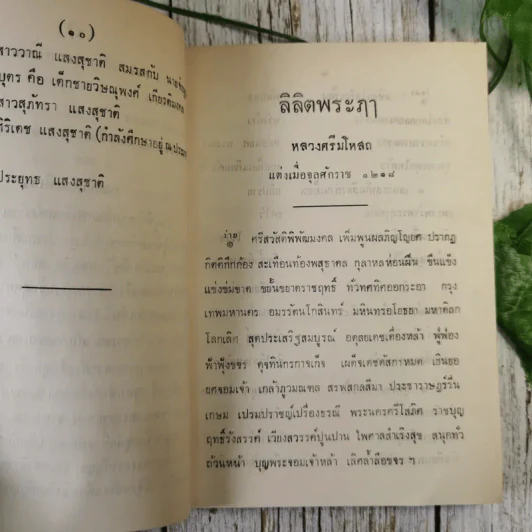 (๑๐)
สาววาณี แสงสุชาติ สมรสกับ
บุตร คือ เด็กชายวิษณุพงศ์
สาวสุภัทรา แสงสุชาติ
ศิริเดช แสงสุชาติ (กำลังศึกษาอยู่
ประยุทธ แสงสุชาติ
ลิลิตพระฦๅ
หลวงศรีมโหสถ
แต่งเมื่อจุลศักราช ๑๒๑๘
ร่าย
๑ ศรีสวัสดิพิพัฒมงคล เพิ่มพูนผลภิญโญยศ ปรากฏ
กิตติกึกก้อง สะเทือนท้องพสุธาดล กุลาหลห่อนฝืน ขืนแข็ง
แข่งข่มขาด ขยั้นขยาดราชฤทธิ์ ทั่วทศทิศออกระอา กรุง
เทพมหานคร อมรรัตนโกสินทร์ มหินทรอโยธยา มหาดิลก
โลกเลิศ สุดประเสริฐสมบูรณ์ อดุลยเดชเดื่องหล้า ผู้ผ่อง
ฟ้าฟุ้งขจร ดุจทินกรกาจเก็จ เผด็จเดชดัสกาหมด เย็นยอ
ยศจอมเจ้า เกล้าภูวมณฑล สรพสกุลสีมา ประชาราษฎร์รื่น
เกษม เปรมปราชญ์เปรื่องธรณี พระนครศรีโสภิต ราชบุญ
ฤทธิ์รังสรรค์ เวียงสวรรค์ปูนปาน ไพศาลสำเริงสุข สนุกทั่ว
ถ้วนหน้า บุญพระจอมเจ้าหล้า เลิศล้ำลือขจร ฯ